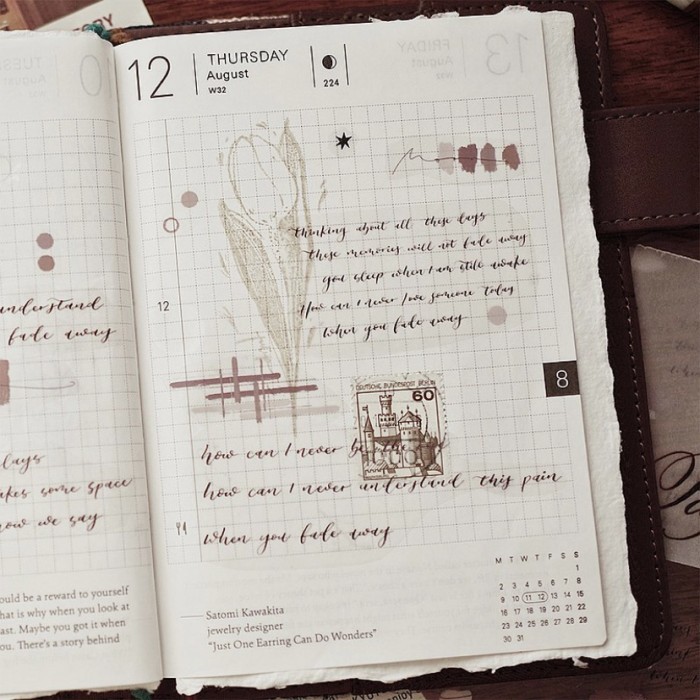 12
THURSDAY
August
W32
224
thinking about all these days
these memories will not fade away
you sleep when I am still awake
How can I never love someone today
when you fade away
12
8
DEUTSCHE BUNDESPOST BERLIN
60
how can I never be the
how can I never understand this pain
when you fade away
Satomi Kawakita
jewelry designer
"Just One Earring Can Do Wonders"
M T W T F S S
1
2 3 4 5 6 7 8
9 10 11 12 13 14 15
16 17 18 19 20 21 22
23 24 25 26 27 28 29
30 31
understand
fade away
days
akes some space
now we say
ould be a reward to yourself
hat is why when you look at
ast. Maybe you got it when
ou. There's a story behind